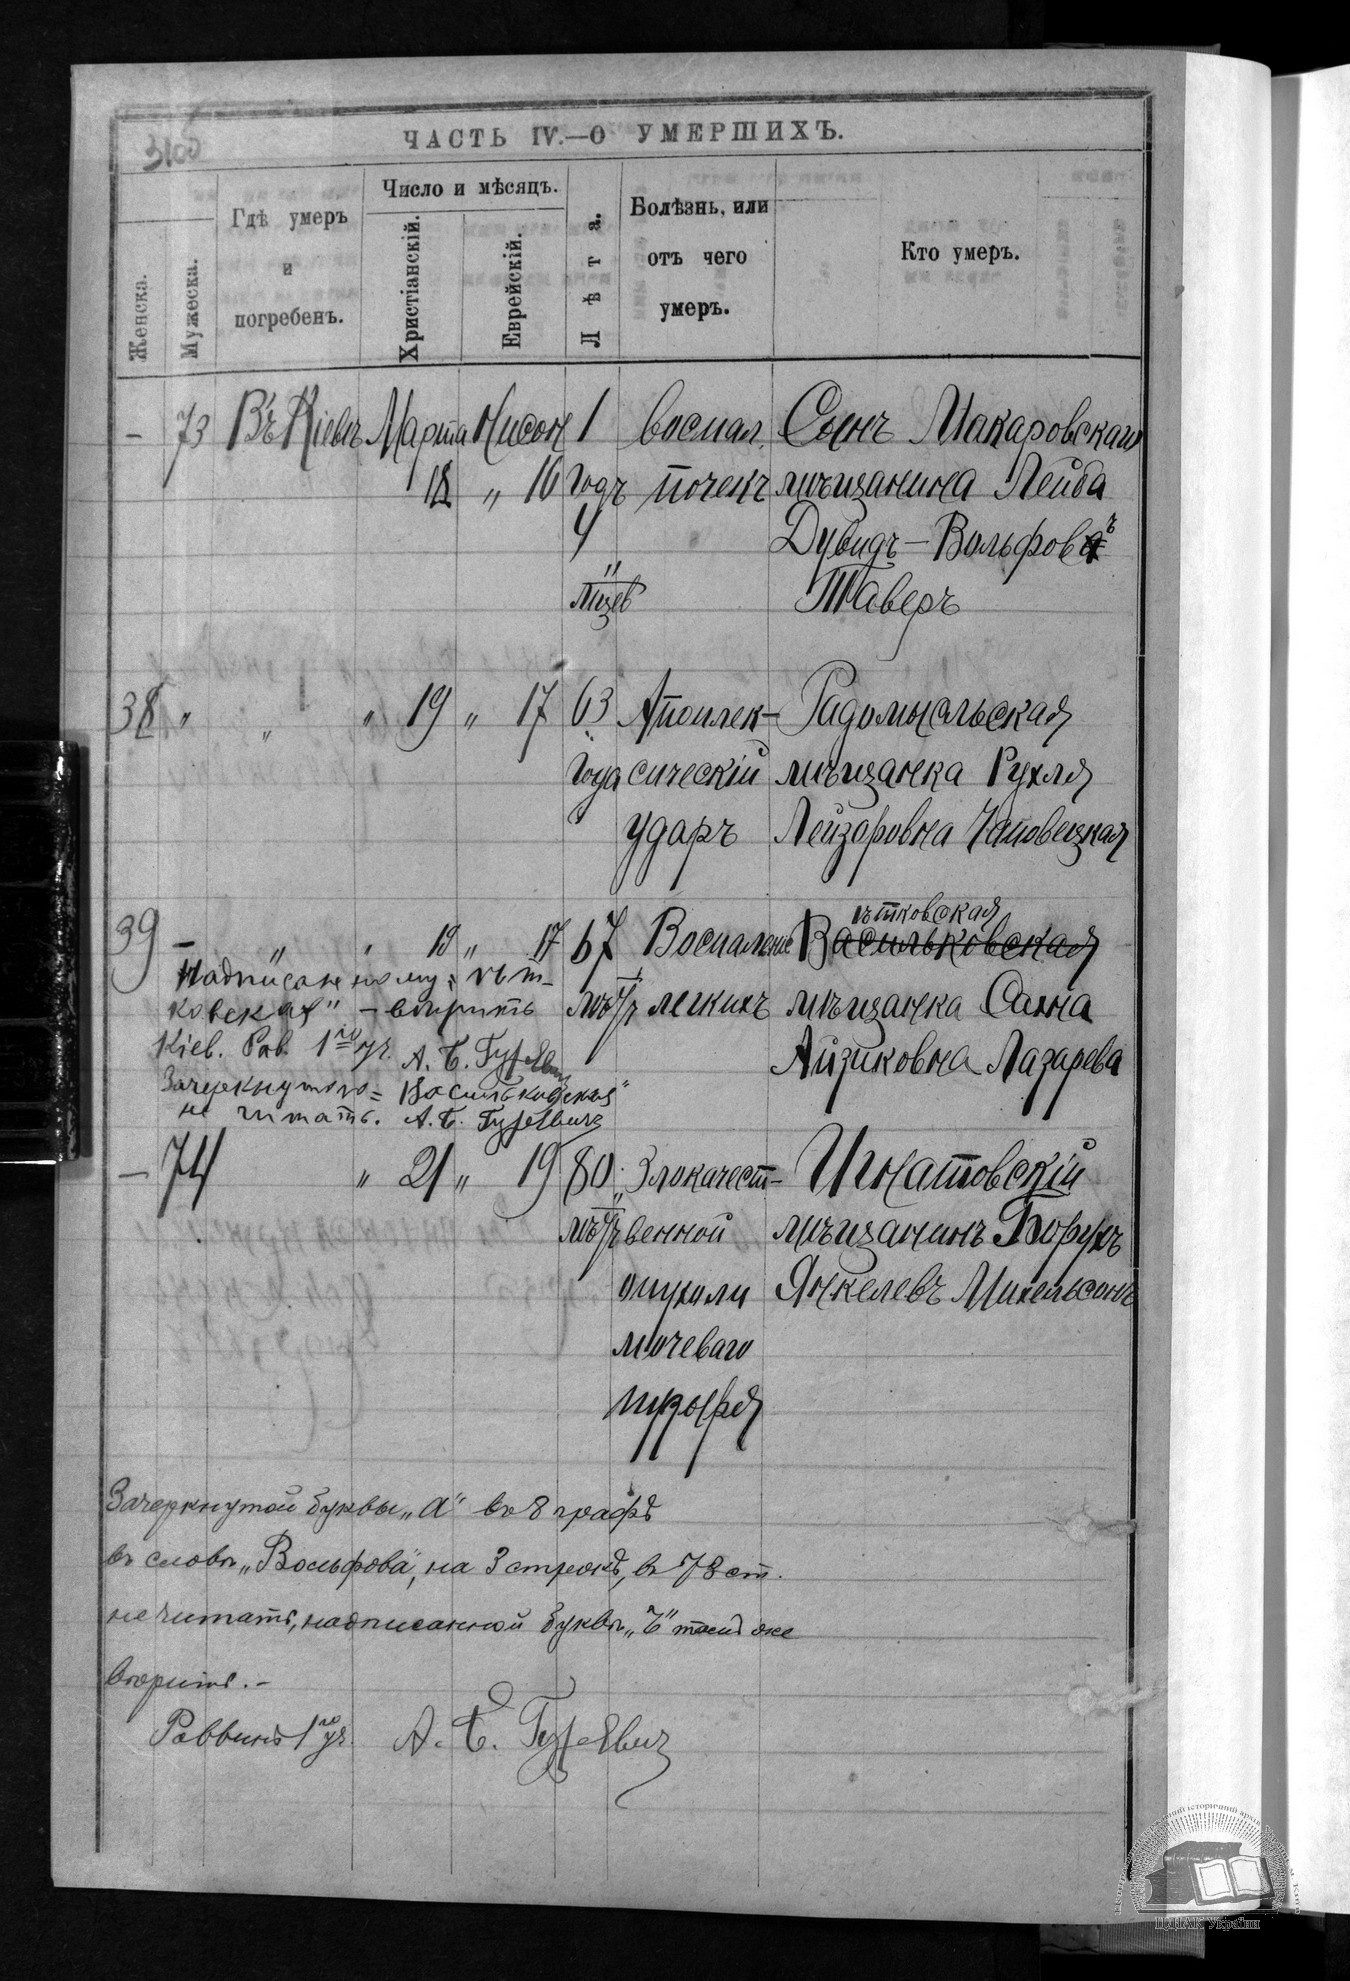 310б
ЧАСТЬ IV.—О УМЕРШИХЪ.
Женска.
Мужеска.
Гдѣ умеръ
и
погребенъ.
Число и мѣсяцъ.
Христіанскій.
Еврейскій.
Лѣта.
Болѣзнь, или
отъ чего
умеръ.
Кто умеръ.
– 73 Въ Кіевѣ Марта Нисон 1 воспал. Сынъ Макаровскаго
18 „ 16 годъ почекъ мѣщанина Лейба
4 Дувидъ–Вольфова ъ
„ мѣсяцев Таверъ
38 „ „ „ 19 „ 17 63 Апоплек– Радомысльская
года сическій мѣщанка Рухля
ударъ Лейзоровна Чаповецкая
ѣтковская
39 – „ „ 19 „ 17 67 Воспаленіе Васильковская
лѣтъ легкихъ мѣщанка Сахна
Айзиковна Лазарева
Надписанному „ѣт–
ковская" – вѣрить
Кіев. Рав. 1го уч. А. Б. Гуревич
Зачеркнутого „Васильковская"
не читать. А. Б. Гуревичъ
– 74 „ 21 „ 19 80 Злокачест– Игнатовскій
лѣтъ венной мѣщанинъ Борухъ
опухоли Янкелевъ Михельсонъ
мочеваго
пузыря
Зачеркнутой буквы „а" въ 8 графѣ
въ словѣ „Вольфова", на 3 строкѣ, въ 73 ст.
не читать, надписанной буквѣ „ъ" тамъ же
вѣрить.–
Раввинъ 1го уч. А. Б. Гуревич
ЦДІАК України